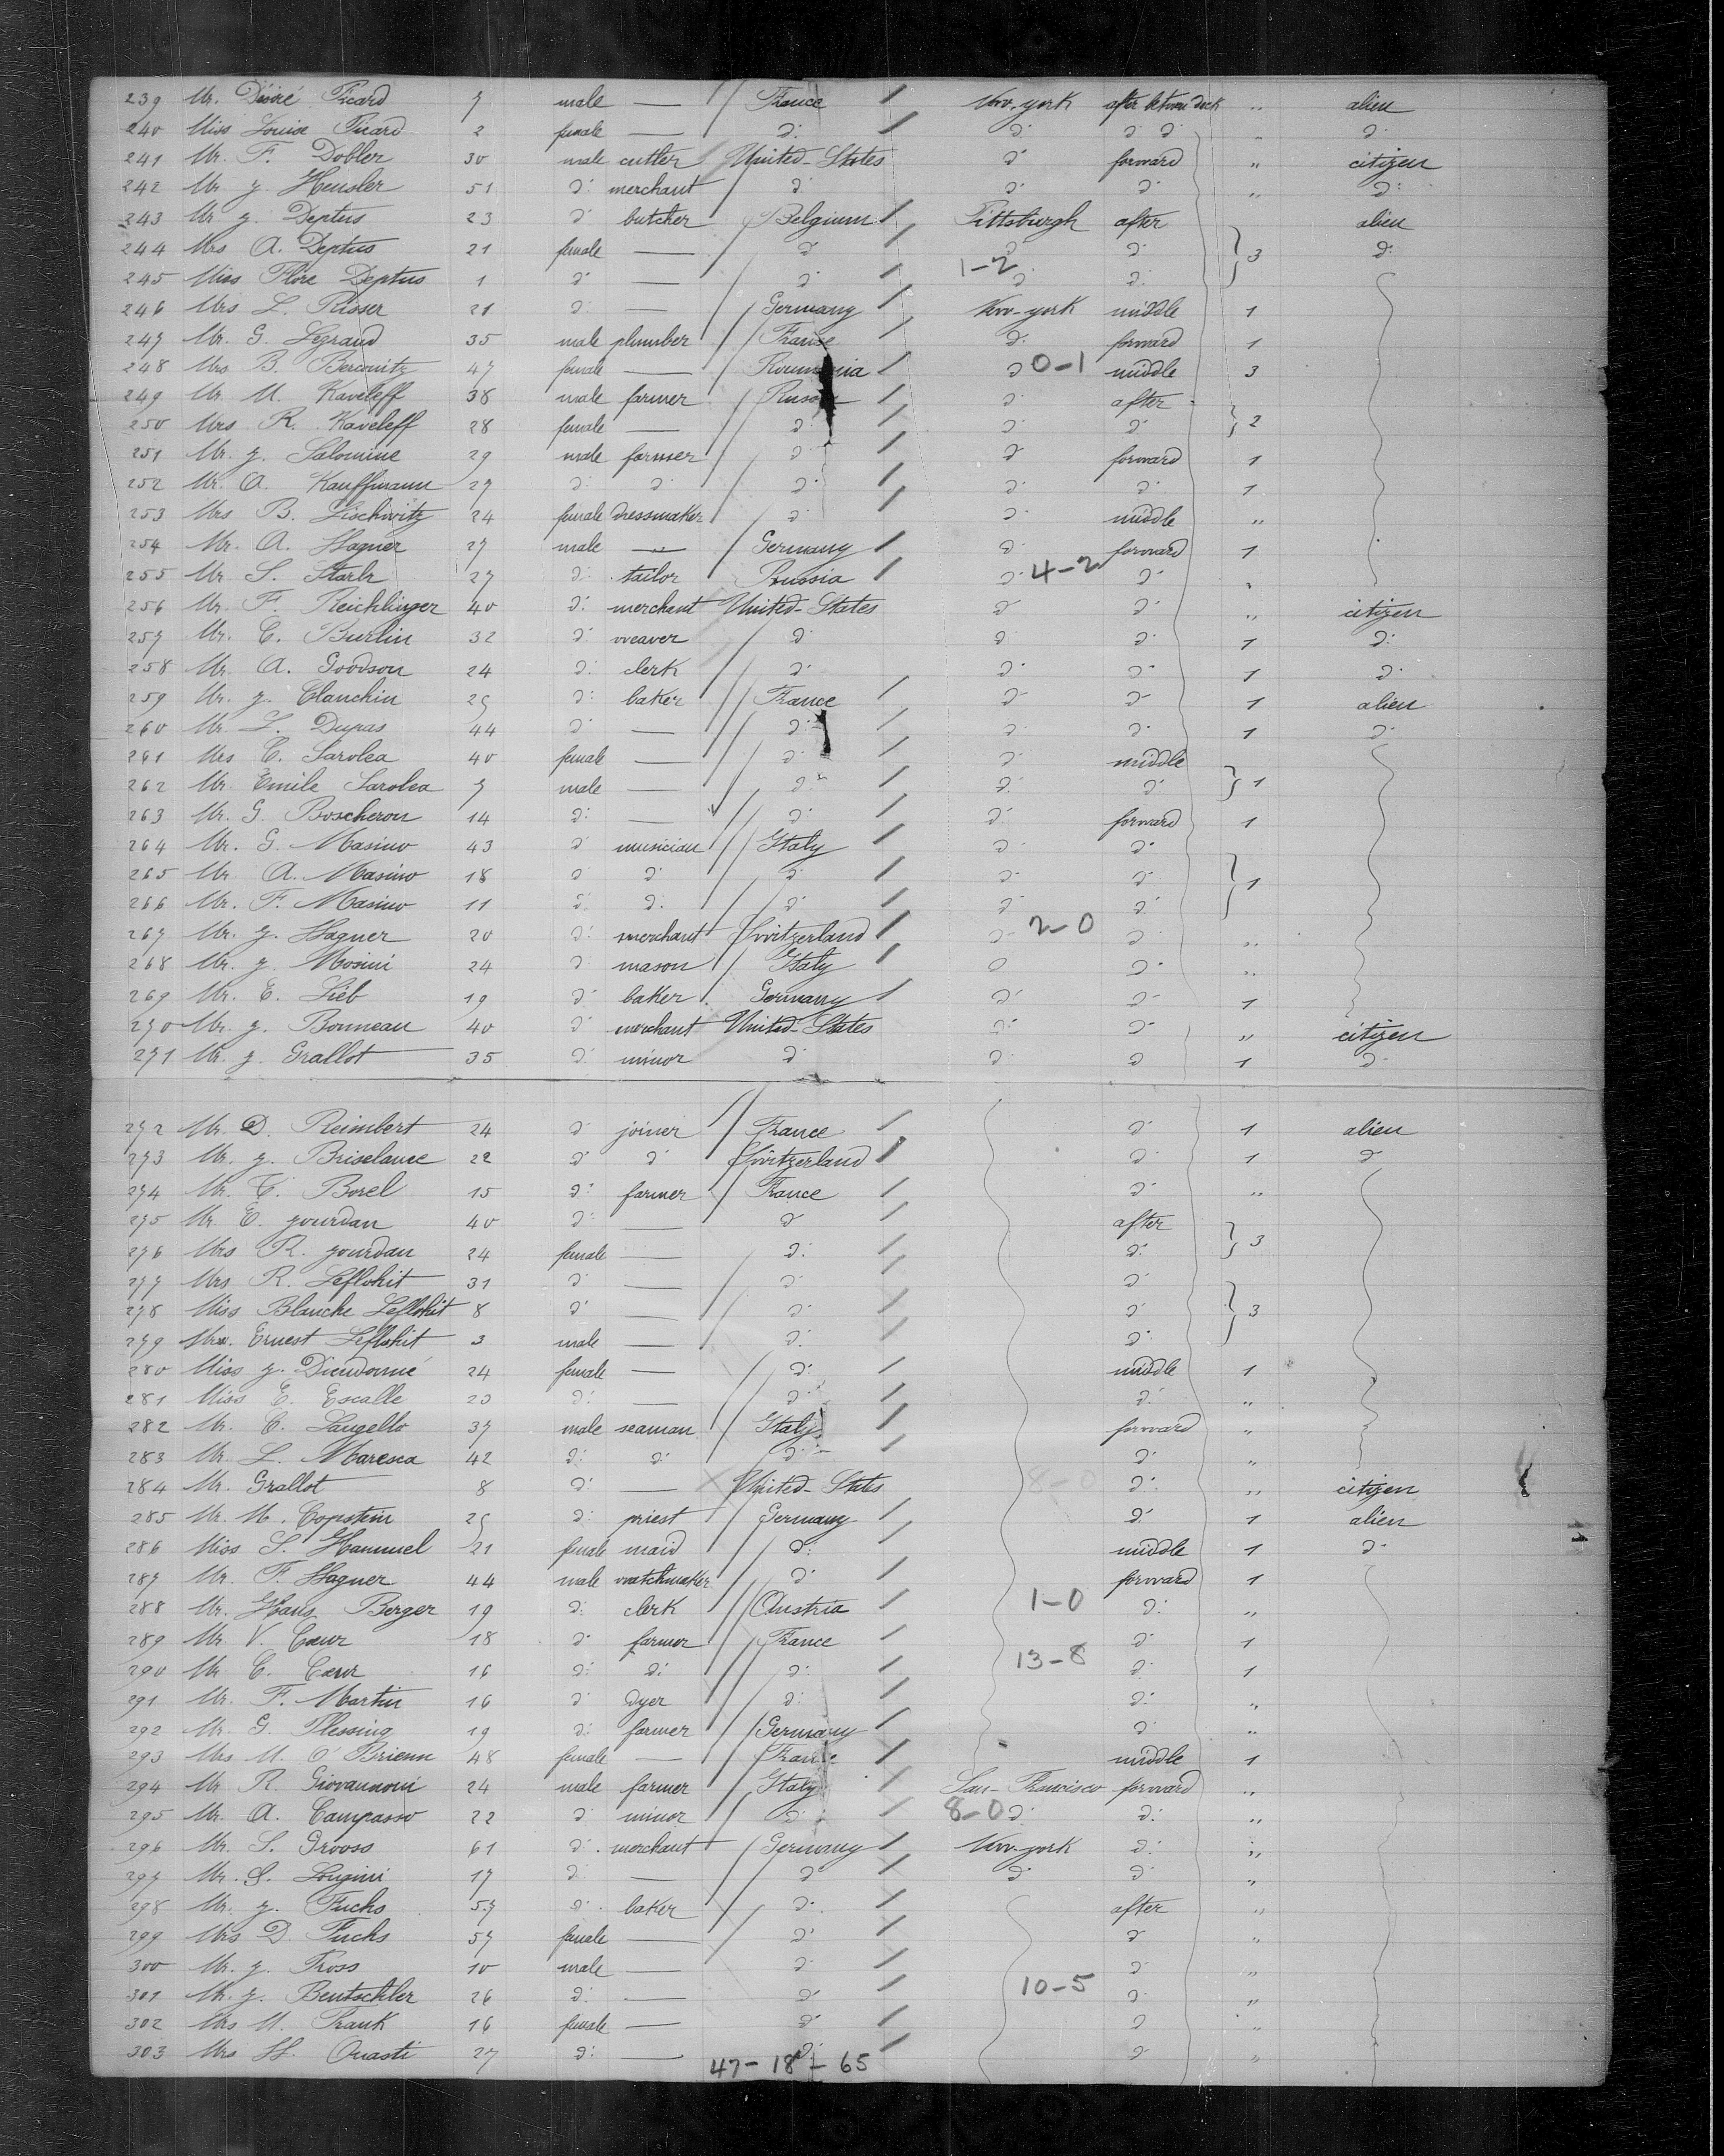 239 Mr. Désiré Picard 7 male — France New-york after between deck " alien
240 Miss Louise Picard 2 female — d: d: d: d: " d:
241 Mr. F. Dobler 30 male cutler United-States d: forward " citizen
242 Mr. J. Heusler 51 d: merchant d: d: d: " d:
243 Mr J. Deptus 23 d: butcher Belgium Pittsburgh after alien
244 Mrs A. Deptus 21 female — d: d: d: 3 d:
245 Miss Flore Deptus 1 d: — d: 1-2 d: d:
246 Mrs L. Risser 21 d: — Germany New-york middle 1
247 Mr. G. Legrand 35 male plumber France d: forward 1
248 Mrs B. Bercovitz 47 female — Roumania d: 0-1 middle 3
249 Mr. M. Kaveleff 38 male farmer Russia d: after
250 Mrs R. Kaveleff 28 female — d: d: d: 2
251 Mr. J. Salomine 29 male farmer d: d: forward 1
252 Mr. A. Kauffmann 27 d: d: d: d: d: 1
253 Mrs B. Lischwitz 24 female dressmaker d: d: middle "
254 Mr. A. Hagner 27 male — Germany d: forward 1
255 Mr S. Starlr 27 d: tailor Russia d: 4-2 d: "
256 Mr. F. Reichlinger 40 d: merchant United-States d: d: " citizen
257 Mr. C. Burlin 32 d: weaver d: d: d: 1 d:
258 Mr. A. Goodson 24 d: clerk d: d: d: 1 d:
259 Mr. J. Clanchin 25 d: baker France d: d: 1 alien
260 Mr. L. Dupas 44 d: — d: d: d: 1 d:
261 Mrs C. Sarolea 40 female — d: d: middle
262 Mr. Emile Sarolea 7 male — d: d: d: 1
263 Mr. G. Boscheron 14 d: — d: d: forward 1
264 Mr. G. Masino 43 d: musician Italy d: d:
265 Mr. A. Masino 18 d: d: d: d: d: 1
266 Mr. F. Masino 11 d: d: d: d: d:
267 Mr. J. Hagner 20 d: merchant Switzerland d: 2-0 d: "
268 Mr. J. Mosini 24 d: mason Italy d: d: "
269 Mr. E. Lieb 19 d: baker Germany d: d: 1
270 Mr. J. Bonneau 40 d: merchant United-States d: d: " citizen
271 Mr. J. Grallot 35 d: minor d: d: d: 1 d:
272 Mr. D. Reimbert 24 d: joiner France d: 1 alien
273 Mr. J. Briselance 22 d: d: Switzerland d: 1 d:
274 Mr. C. Borel 15 d: farmer France d: "
275 Mr E. Jourdan 40 d: — d: after
276 Mrs R. Jourdan 24 female — d: d: 3
277 Mrs R. Leflohit 31 d: — d: d:
278 Miss Blanche Leflohit 8 d: — d: d: 3
279 Mr. Ernest Leflohit 3 male — d: d:
280 Miss J. Dieudonné 24 female — d: middle 1
281 Miss E. Escalle 20 d: — d: d: "
282 Mr. C. Langello 37 male seaman Italy forward "
283 Mr. L. Maresca 42 d: d: d: d: "
284 Mr. Grallot 8 d: — United-States 8-0 d: " citizen
285 Mr. M. Copstein 25 d: priest Germany d: 1 alien
286 Miss S. Hammel 21 female maid d: middle 1 d:
287 Mr. F. Hagner 44 male watchmaker d: forward 1
288 Mr. Hans Berger 19 d: clerk Austria 1-0 d: "
289 Mr V. Cœur 18 d: farmer France d: 1
290 Mr C. Cœur 16 d: d: d: 13-8 d: 1
291 Mr. F. Martin 16 d: dyer d: d: "
292 Mr. G. Plessing 19 d: farmer Germany d: "
293 Mrs M. O'Brienn 48 female — France middle 1
294 Mr R. Giovannoni 24 male farmer Italy San-Francisco forward "
295 Mr. A. Campasso 22 d: minor d: 8-0 d: d: "
296 Mr. S. Grooss 61 d: merchant Germany New-york d: "
297 Mr. S. Lougini 17 d: — d: d: d: "
298 Mr. J. Fuchs 57 d: baker d: after "
299 Mrs D. Fuchs 57 female — d: d: "
300 Mr. J. Kross 10 male — d: d: "
301 Mr. J. Bentschler 26 d: — d: 10-5 d: "
302 Mrs M. Frank 16 female — d: d: "
303 Mrs H. Quasti 27 d: — d: d: "
47-18-65